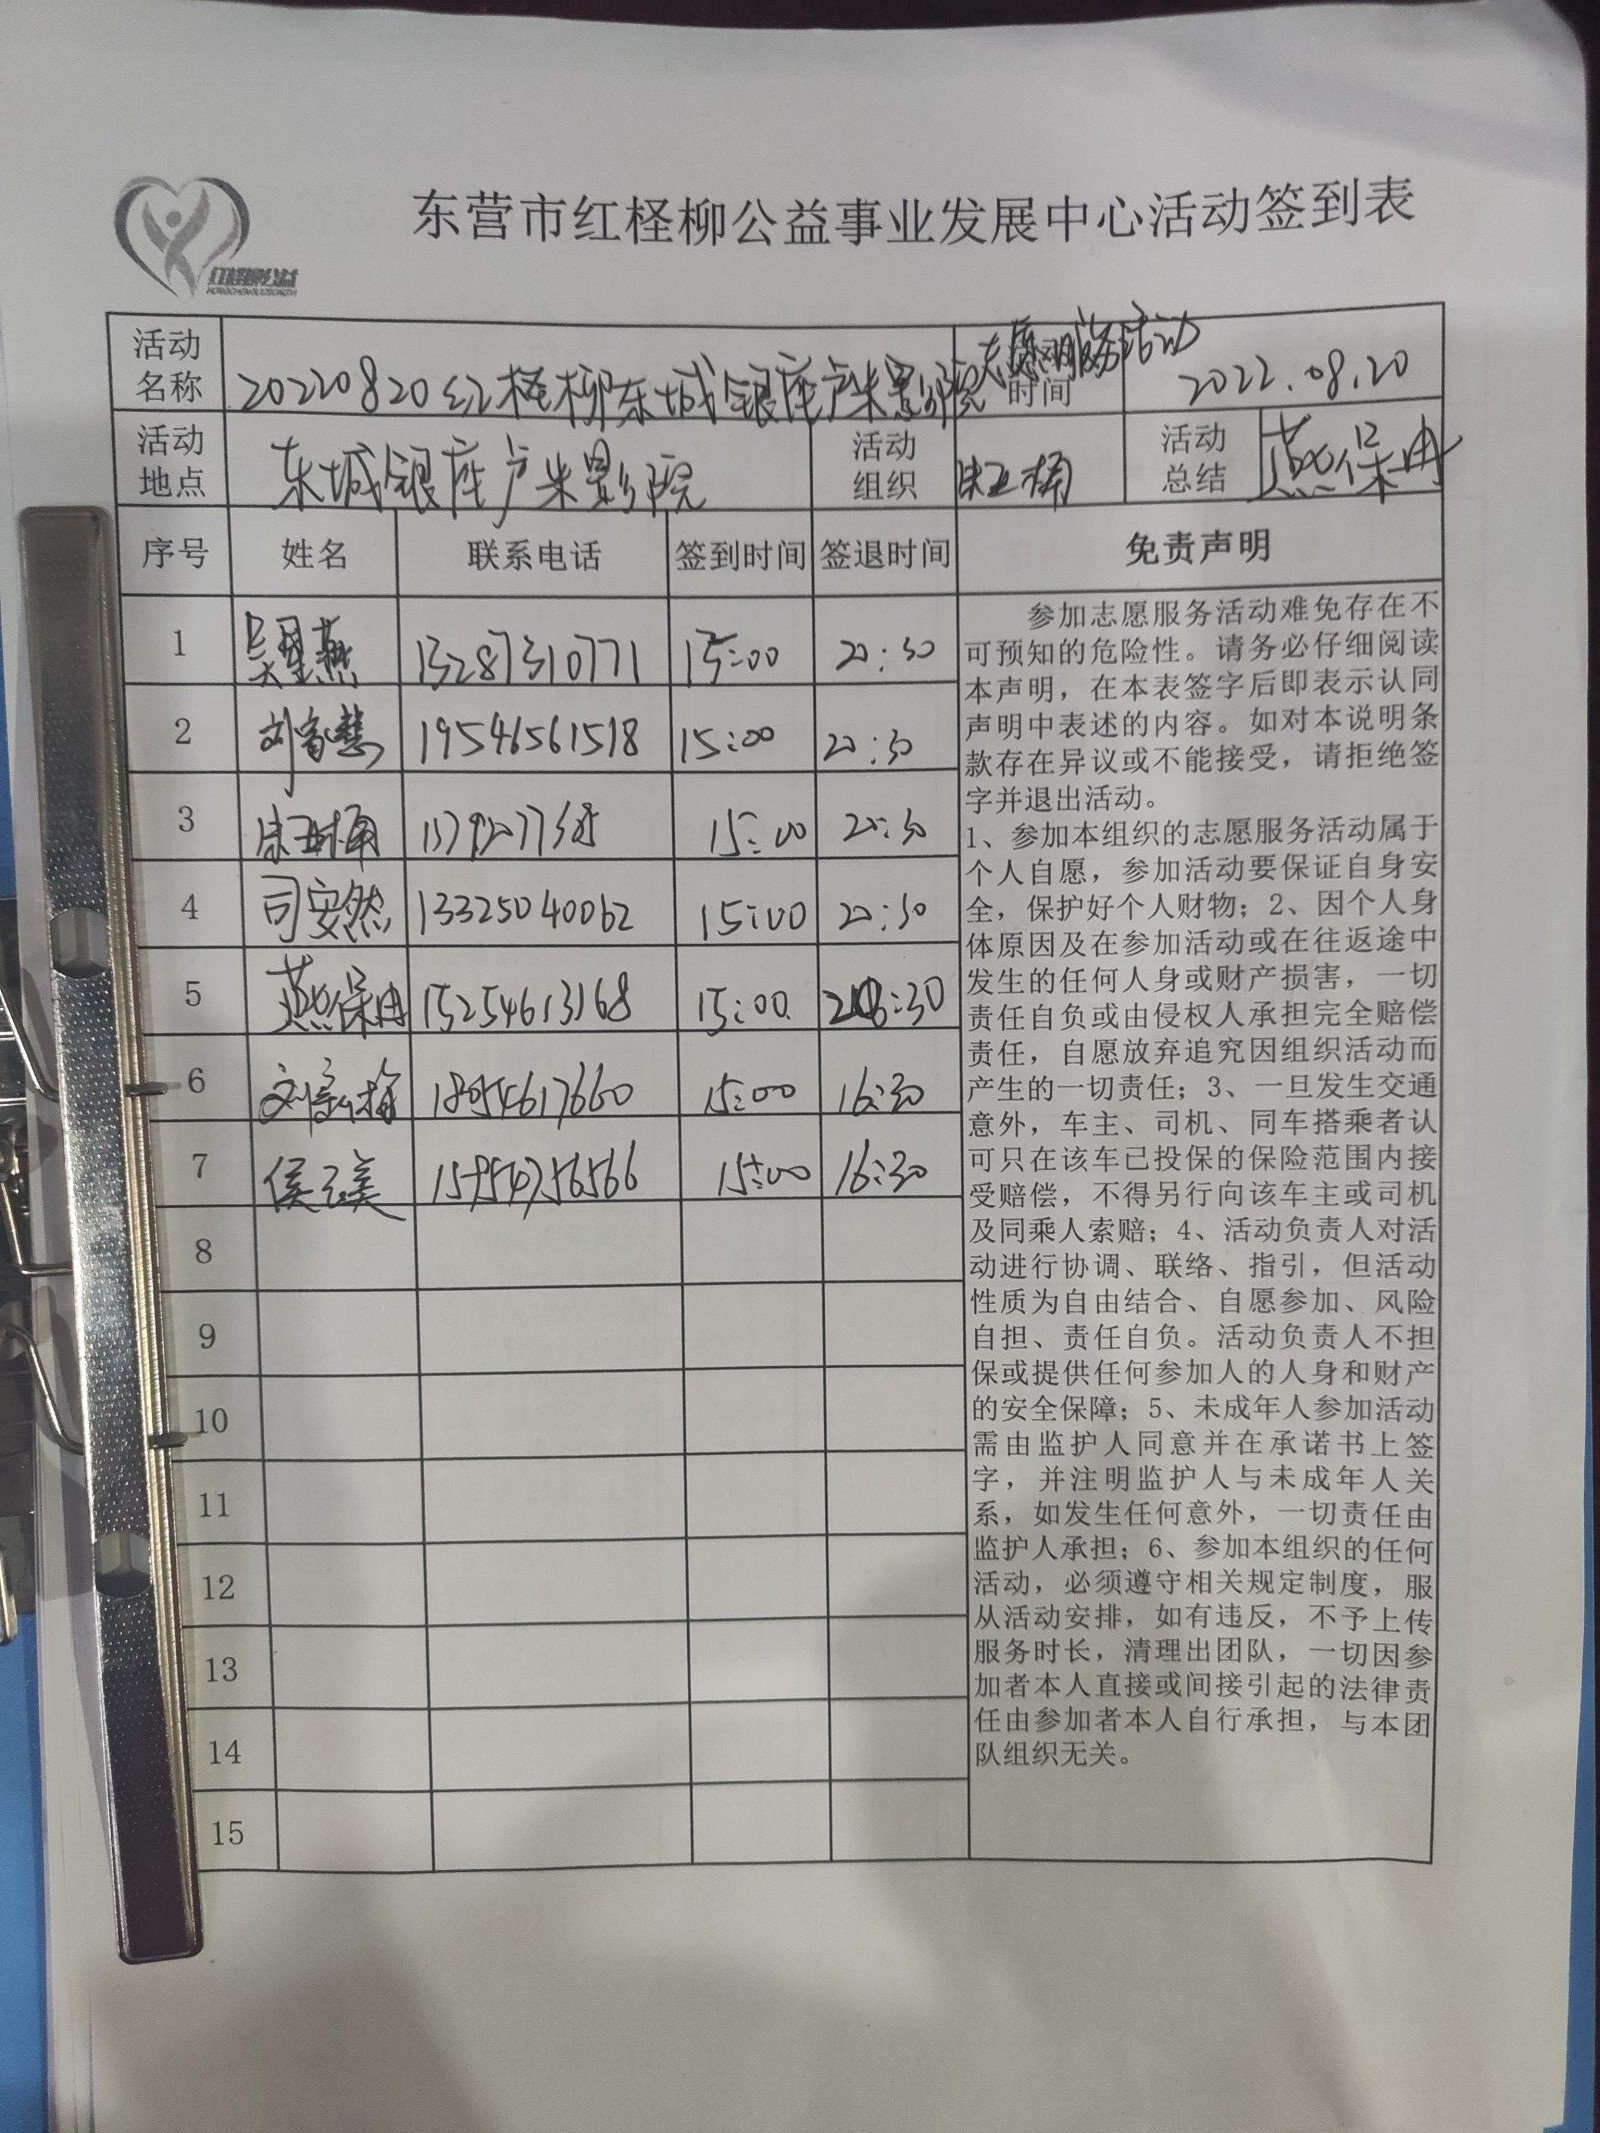 东营市红柽柳公益事业发展中心活动签到表
红柽柳公益
活动名称 20220820红柽柳东城银座卢米影院志愿服务活动 时间 2022.08.20
活动地点 东城银座卢米影院 活动组织 活动总结 燕保冉
序号 姓名 联系电话 签到时间 签退时间 免责声明
1 燕 13287310771 15:00 20:30
2 刘 慧 19546561518 15:00 20:30
3 15:00 20:30
4 司安然 13325040062 15:00 20:30
5 燕保冉 15254613168 15:00 20:30
6 刘 梅 18954617660 15:00 16:30
7 侯 美 15954756566 15:00 16:30
8
9
10
11
12
13
14
15
参加志愿服务活动难免存在不
可预知的危险性。请务必仔细阅读
本声明，在本表签字后即表示认同
声明中表述的内容。如对本说明条
款存在异议或不能接受，请拒绝签
字并退出活动。
1、参加本组织的志愿服务活动属于
个人自愿，参加活动要保证自身安
全，保护好个人财物；2、因个人身
体原因及在参加活动或在往返途中
发生的任何人身或财产损害，一切
责任自负或由侵权人承担完全赔偿
责任，自愿放弃追究因组织活动而
产生的一切责任；3、一旦发生交通
意外，车主、司机、同车搭乘者认
可只在该车已投保的保险范围内接
受赔偿，不得另行向该车主或司机
及同乘人索赔；4、活动负责人对活
动进行协调、联络、指引，但活动
性质为自由结合、自愿参加、风险
自担、责任自负。活动负责人不担
保或提供任何参加人的人身和财产
的安全保障；5、未成年人参加活动
需由监护人同意并在承诺书上签
字，并注明监护人与未成年人关
系，如发生任何意外，一切责任由
监护人承担；6、参加本组织的任何
活动，必须遵守相关规定制度，服
从活动安排，如有违反，不予上传
服务时长，清理出团队，一切因参
加者本人直接或间接引起的法律责
任由参加者本人自行承担，与本团
队组织无关。